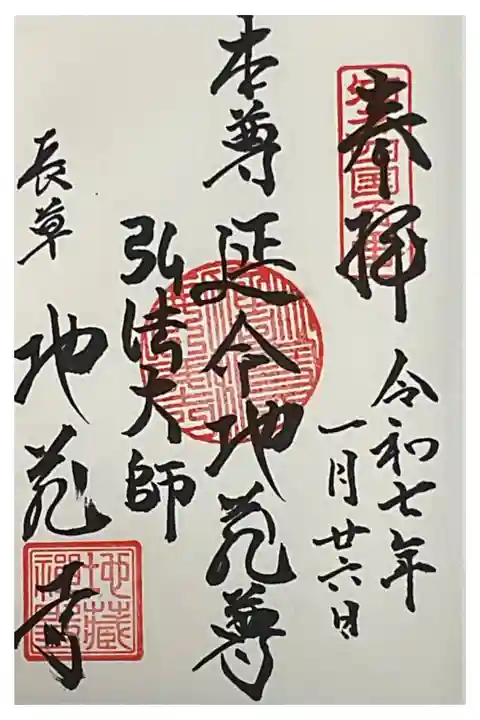 奉拝
令和七年
一月廿六日
本尊延命地蔵尊
弘法大師
長草
地蔵寺